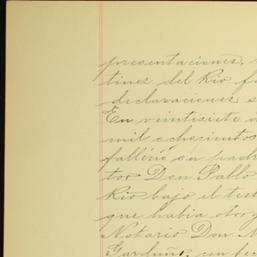 presentaciones,
tinez del Rio f
declaraciones s
En veintisiete d
mil ochocientos
falleció su padre
tor Don Pablo
Rio bajo el tes
que habia otor
Notario Don
Garduño, un fe